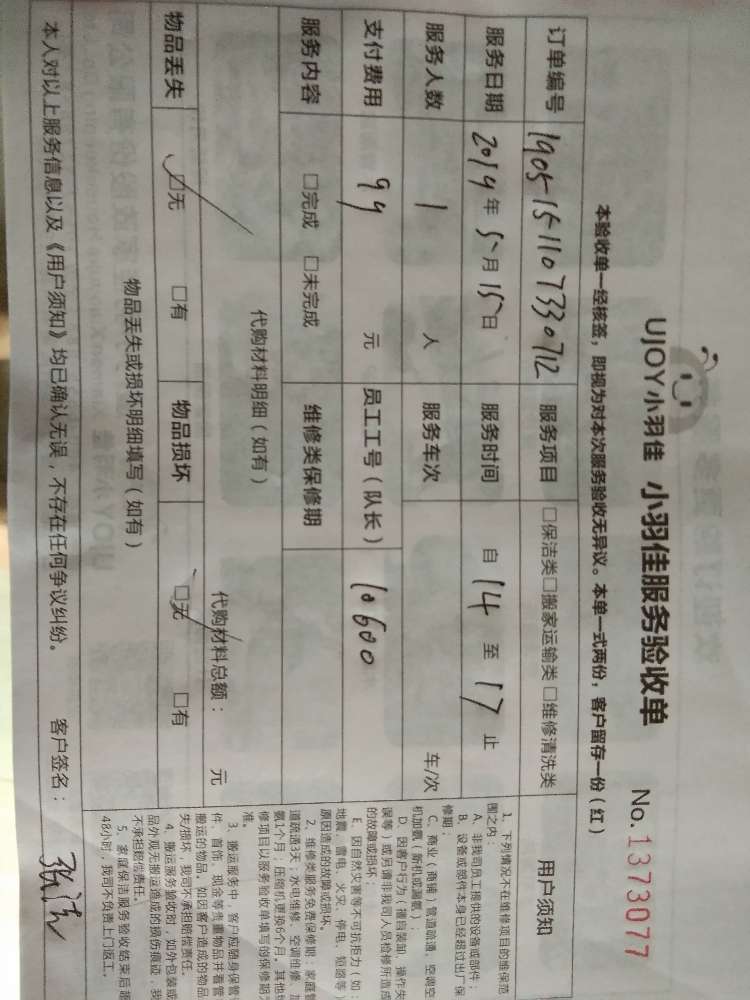 UJOY小羽佳 小羽佳服务验收单 No.1373077
本验收单一经核签，即视为对本次服务验收无异议。本单一式两份，客户留存一份（红）
订单编号 1905151107330712 服务项目 □保洁类□搬家运输类□维修清洗类
服务日期 2019年5月15日 服务时间 自14至17止
服务人数 1人 服务车次 车/次
支付费用 99元 员工工号（队长） 10600
服务内容 □完成 □未完成 维修类保修期
代购材料明细（如有） 代购材料总额： 元
物品丢失 □无 □有 物品损坏 □无 □有
物品丢失或损坏明细填写（如有）
本人对以上服务信息以及《用户须知》均已确认无误，不存在任何争议纠纷。 客户签名：
用户须知
1、下列情况不在维修项目的维保范
围之内：
A、非我司员工提供的设备或部件；
B、设备或部件本身已经超过出厂保
修期；
C、商业（商铺）管道疏通、空调空
机加氨（新机或漏氨）；
D、因客户行为（擅自装卸、操作失
误等）或另请非我司人员检修所造成
的故障或损坏；
E、因自然灾害等不可抗拒力（如：
地震、雷电、火灾、停电、短路等）
原因造成的故障或损坏。
2、维修类服务免费保修期：家庭管
道疏通3天；水电维修、空调维修、加
氨1个月；压缩机更换6个月。其他维
修项目以服务验收单填写的保修期为
准。
3、搬运服务中，客户应随身保管
件、首饰、现金等贵重物品并看管
搬运的物品，如因客户造成的物品
失/损坏，我司不承担赔偿责任。
4、搬运服务验收时，如外包装或
品外观无搬运造成的损伤痕迹，我
不承担赔偿责任。
5、家庭保洁服务验收结束后超
48小时，我司不负责上门返工。